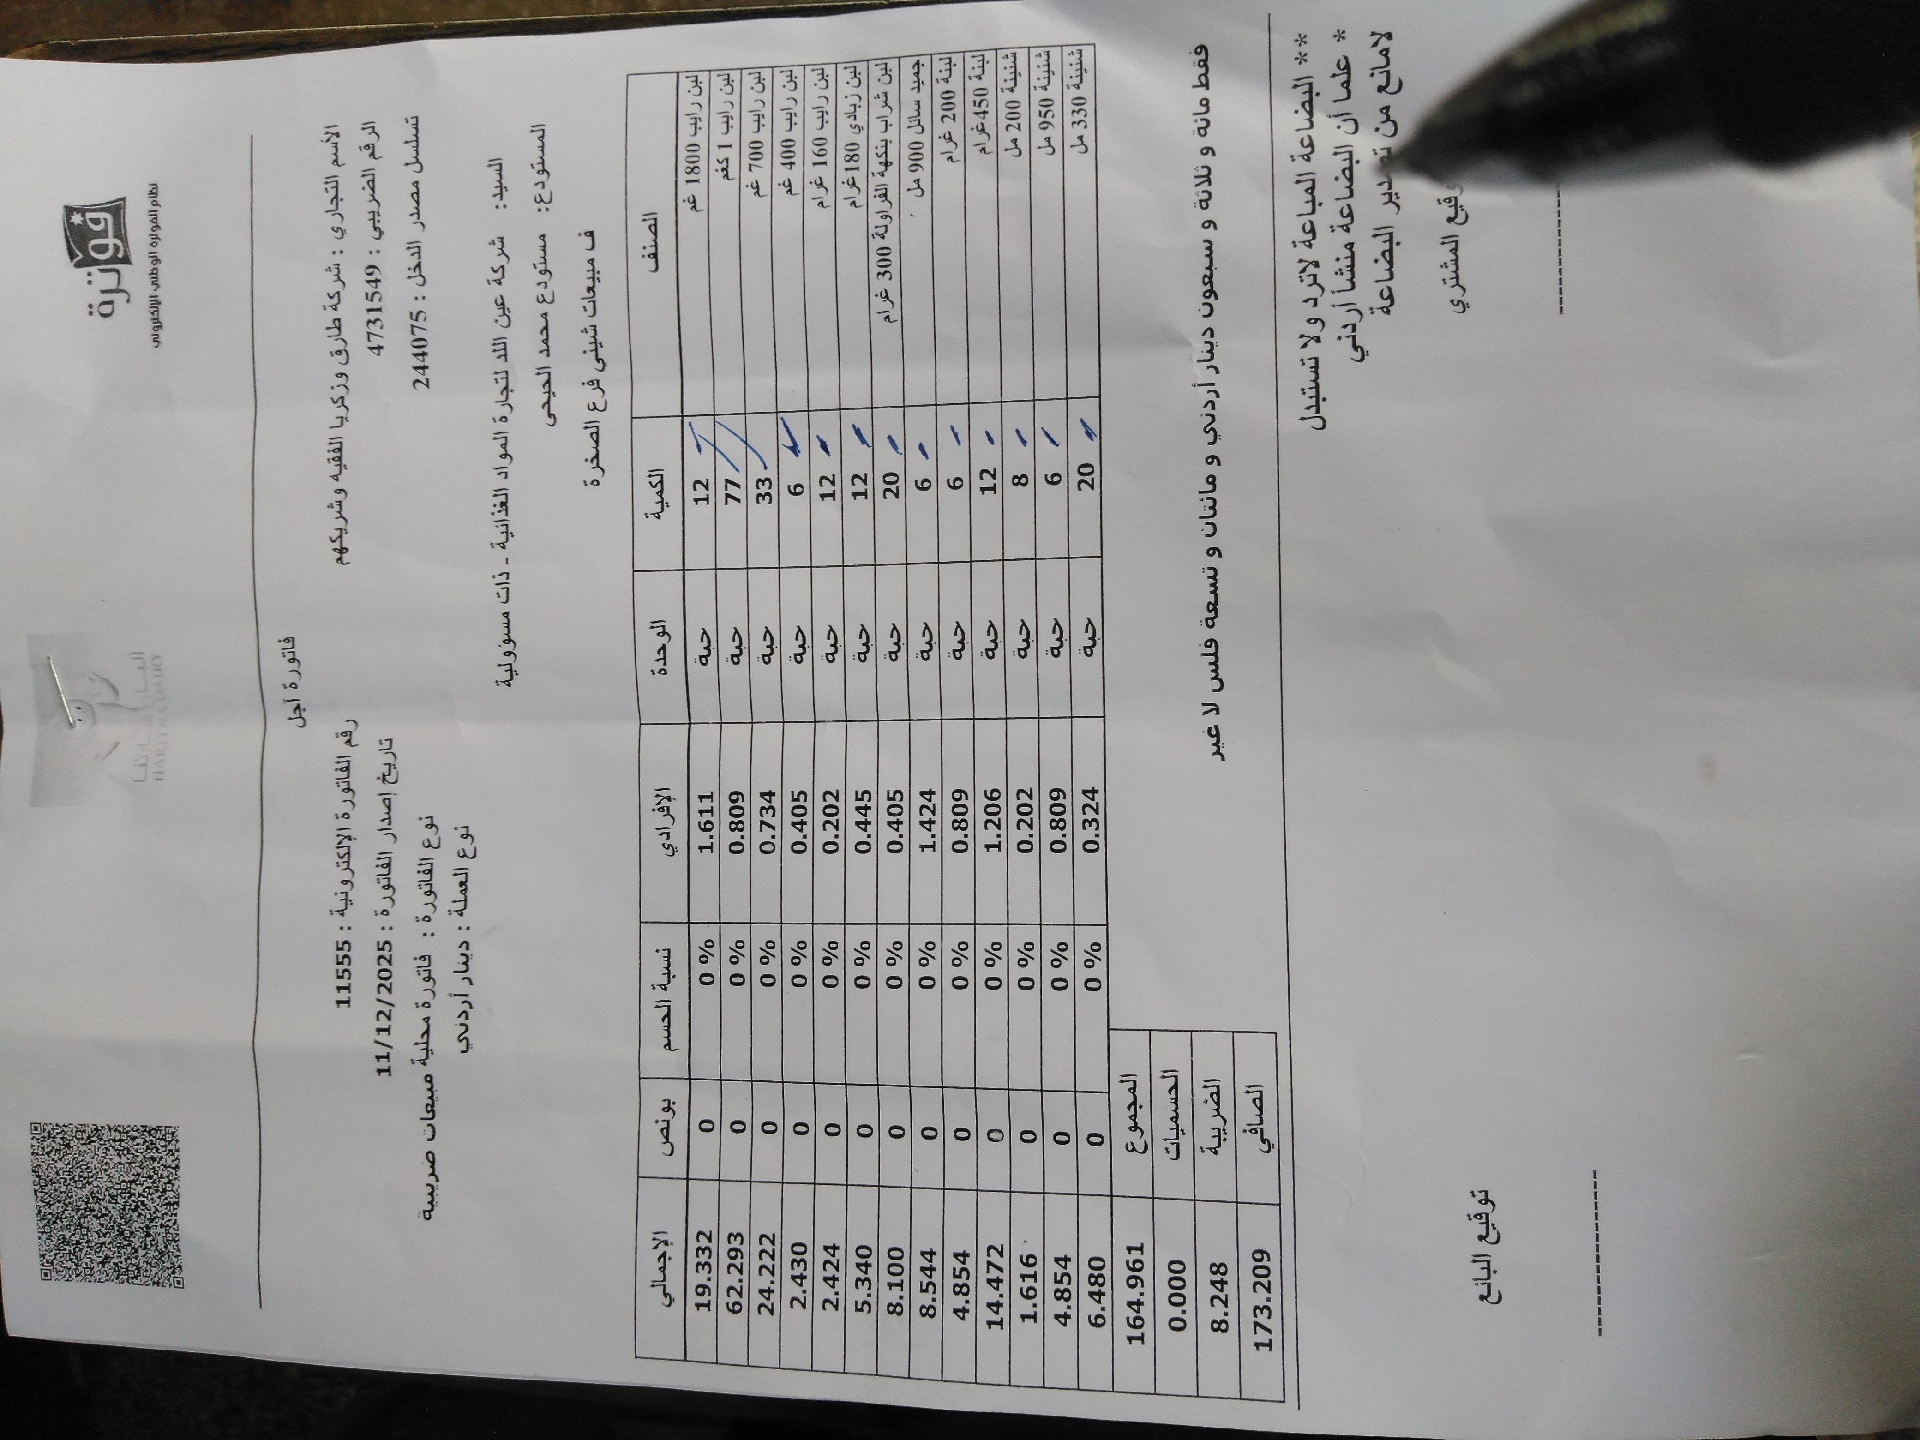 فوترة
نظام الفوترة الوطني الإلكتروني
HARETNA DAIRY
فاتورة آجل
الأسم التجاري : شركة طارق وزكريا الفقيه وشريكهم
رقم الفاتورة الإلكترونية : 11555
الرقم الضريبي : 4731549
تاريخ إصدار الفاتورة : 11/12/2025
تسلسل مصدر الدخل : 244075
نوع الفاتورة : فاتورة محلية مبيعات ضريبية
نوع العملة : دينار أردني
السيد: شركة عين اللد لتجارة المواد الغذائية - ذات مسؤولية
المستودع: مستودع محمد الحيحي
ف مبيعات شيني فرع الصخرة
الصنف الكمية الوحدة الإفرادي نسبة الحسم بونص الإجمالي
لبن رايب 1800 غم 12 حبة 1.611 0 % 0 19.332
لبن رايب 1 كغم 77 حبة 0.809 0 % 0 62.293
لبن رايب 700 غم 33 حبة 0.734 0 % 0 24.222
لبن رايب 400 غم 6 حبة 0.405 0 % 0 2.430
لبن رايب 160 غرام 12 حبة 0.202 0 % 0 2.424
لبن زبادي 180غرام 12 حبة 0.445 0 % 0 5.340
لبن شراب بنكهة الفراولة 300 غرام 20 حبة 0.405 0 % 0 8.100
جميد سائل 900 مل 6 حبة 1.424 0 % 0 8.544
لبنة 200 غرام 6 حبة 0.809 0 % 0 4.854
لبنة 450غرام 12 حبة 1.206 0 % 0 14.472
شنينة 200 مل 8 حبة 0.202 0 % 0 1.616
شنينة 950 مل 6 حبة 0.809 0 % 0 4.854
شنينة 330 مل 20 حبة 0.324 0 % 0 6.480
المجموع 164.961
الحسميات 0.000
الضريبة 8.248
الصافي 173.209
فقط مائة و ثلاثة و سبعون دينار أردني و مائتان و تسعة فلس لا غير
** البضاعة المباعة لاترد ولا تستبدل
* علما أن البضاعة منشأ أردني
لامانع من تصدير البضاعة
المشتري
توقيع البائع